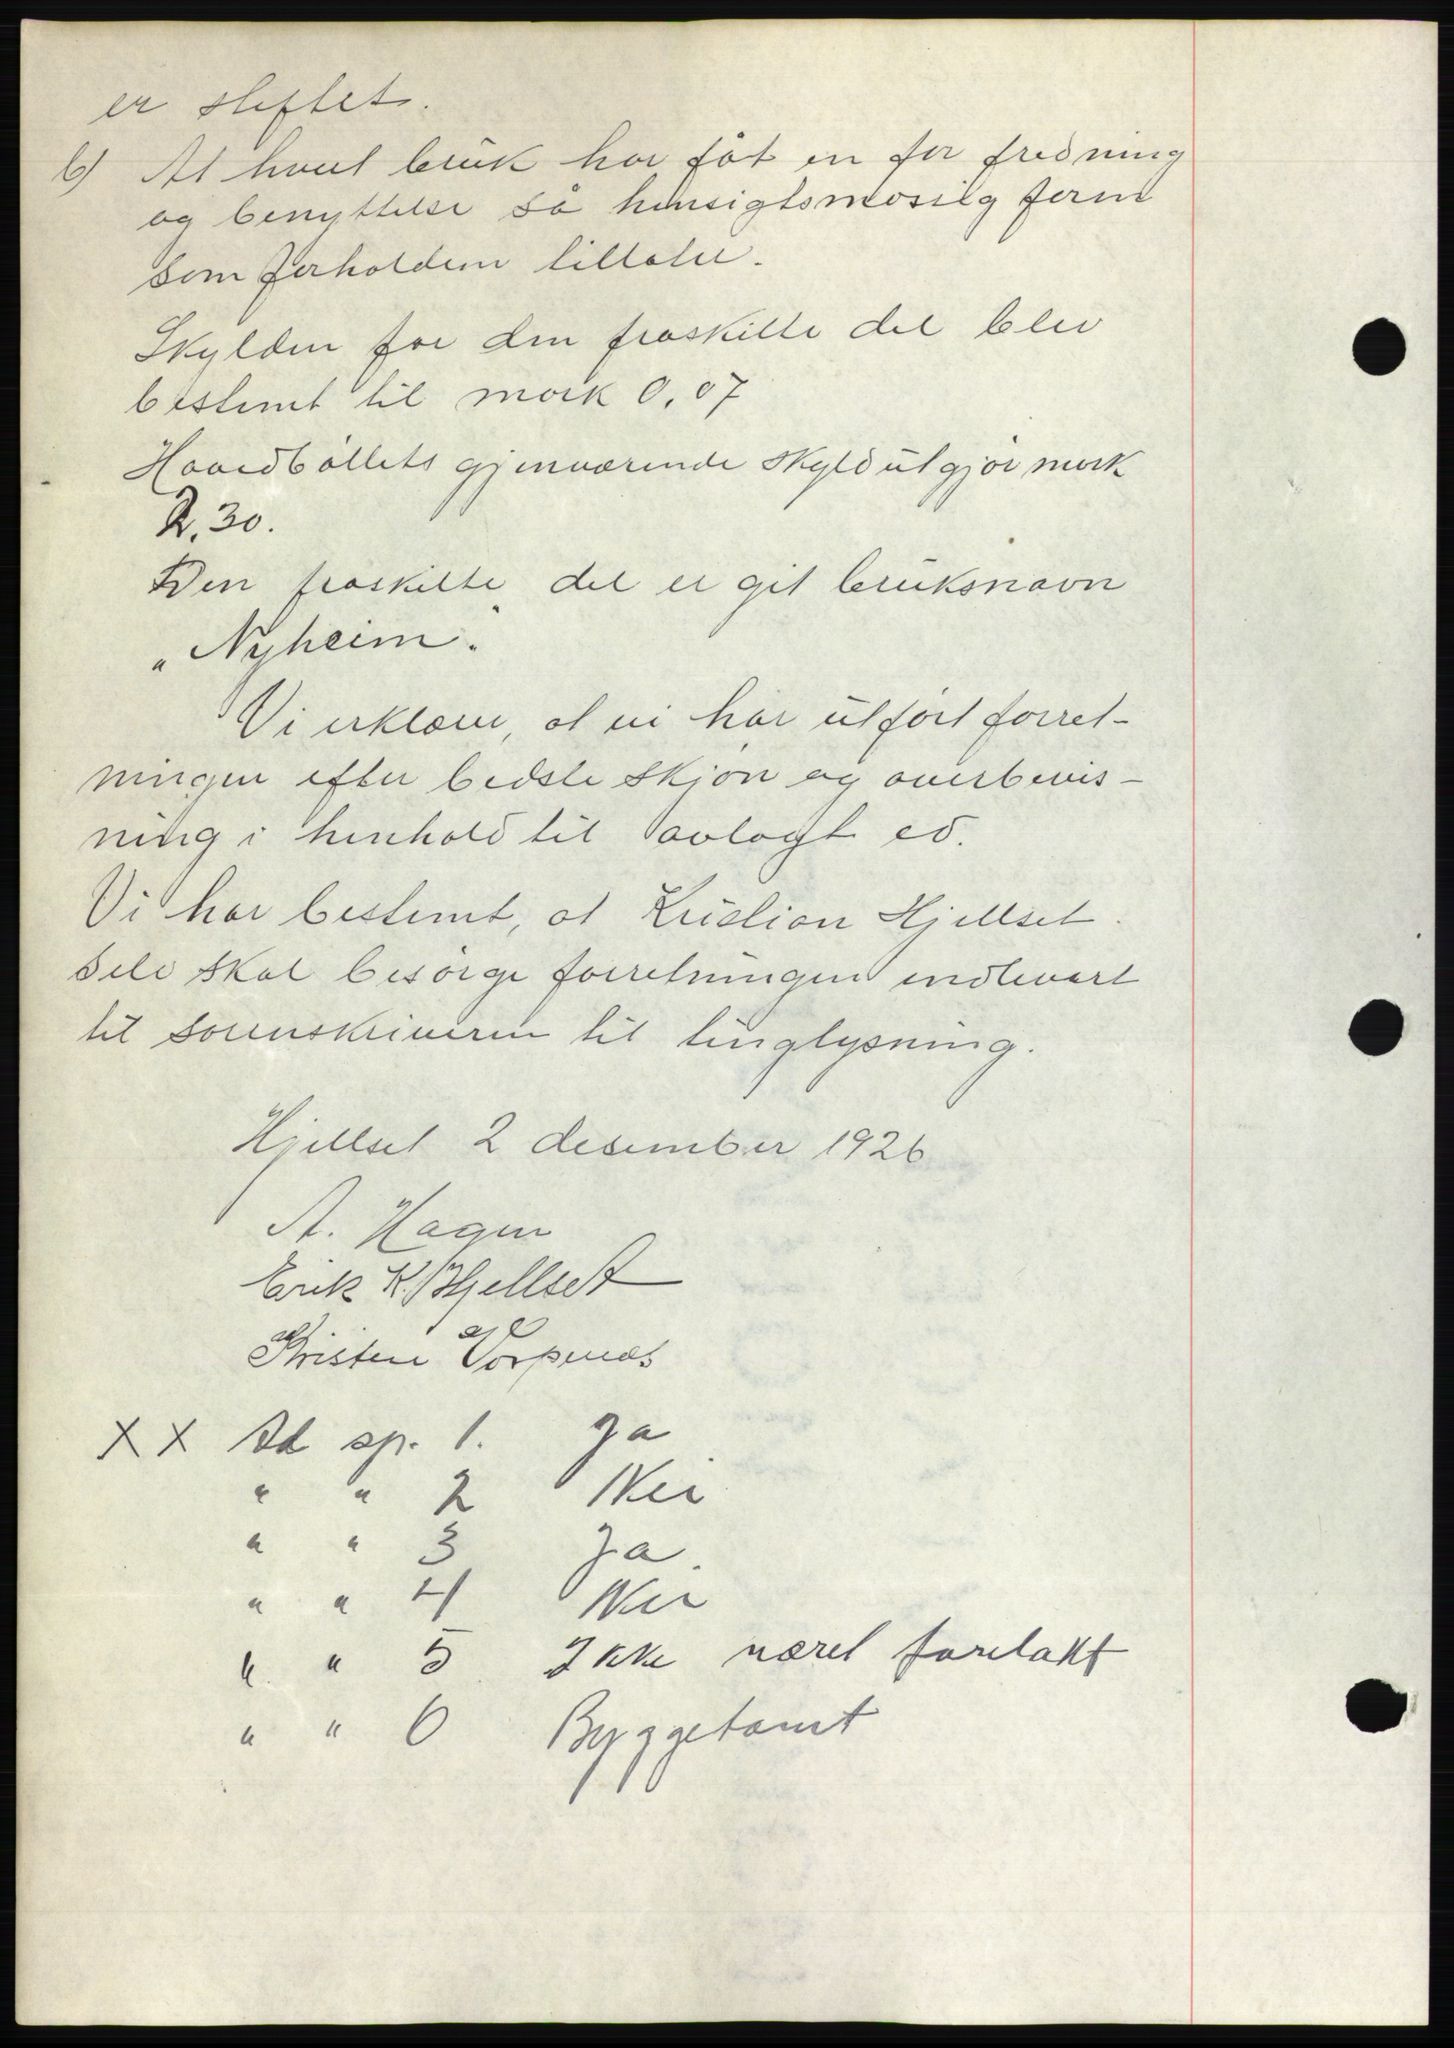 er skiftet.
b) At hvert bruk har fåt en for fredning
og benyttelse så hensigtsmæssig form
som forholdene tillater.
Skylden for den fraskilte del blev
bestemt til mark 0,07
Hovedbøllets gjenværende skyld utgjør mark
2,30.
Den fraskilte del er git bruksnavn
„Nyheim".
Vi erklærer, at vi har utført forret-
ningen efter bedste skjøn og overbevis-
ning i henhold til avlagt ed.
Vi har bestemt, at Kristian Hjellset
selv skal besørge forretningen indlevert
til sorenskriveren til tinglysning.
Hjellset 2 desember 1926
A. Hagen
Erik K. Hjellset
Kristen Vorpenes
X X Ad sp. 1. Ja
" " 2 Nei
" " 3 Ja.
" " 4 Nei
" " 5 Ikke været foretakt
" " 6 Byggetomt